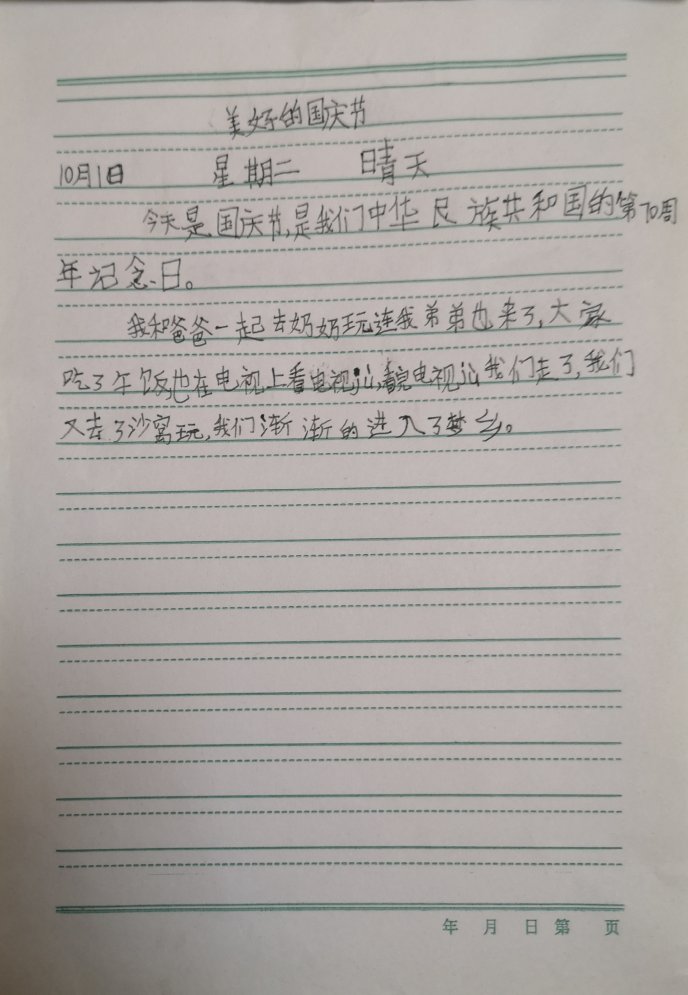 美好的国庆节
10月1日 星期二 晴天
今天是国庆节,是我们中华民族共和国的第70周
年记念日。
我和爸爸一起去奶奶玩连我弟弟也来了,大家
吃了午饭也在电视上看电视,看完电视 我们走了,我们
又去了沙窝玩,我们渐渐的进入了梦乡。
年 月 日 第 页